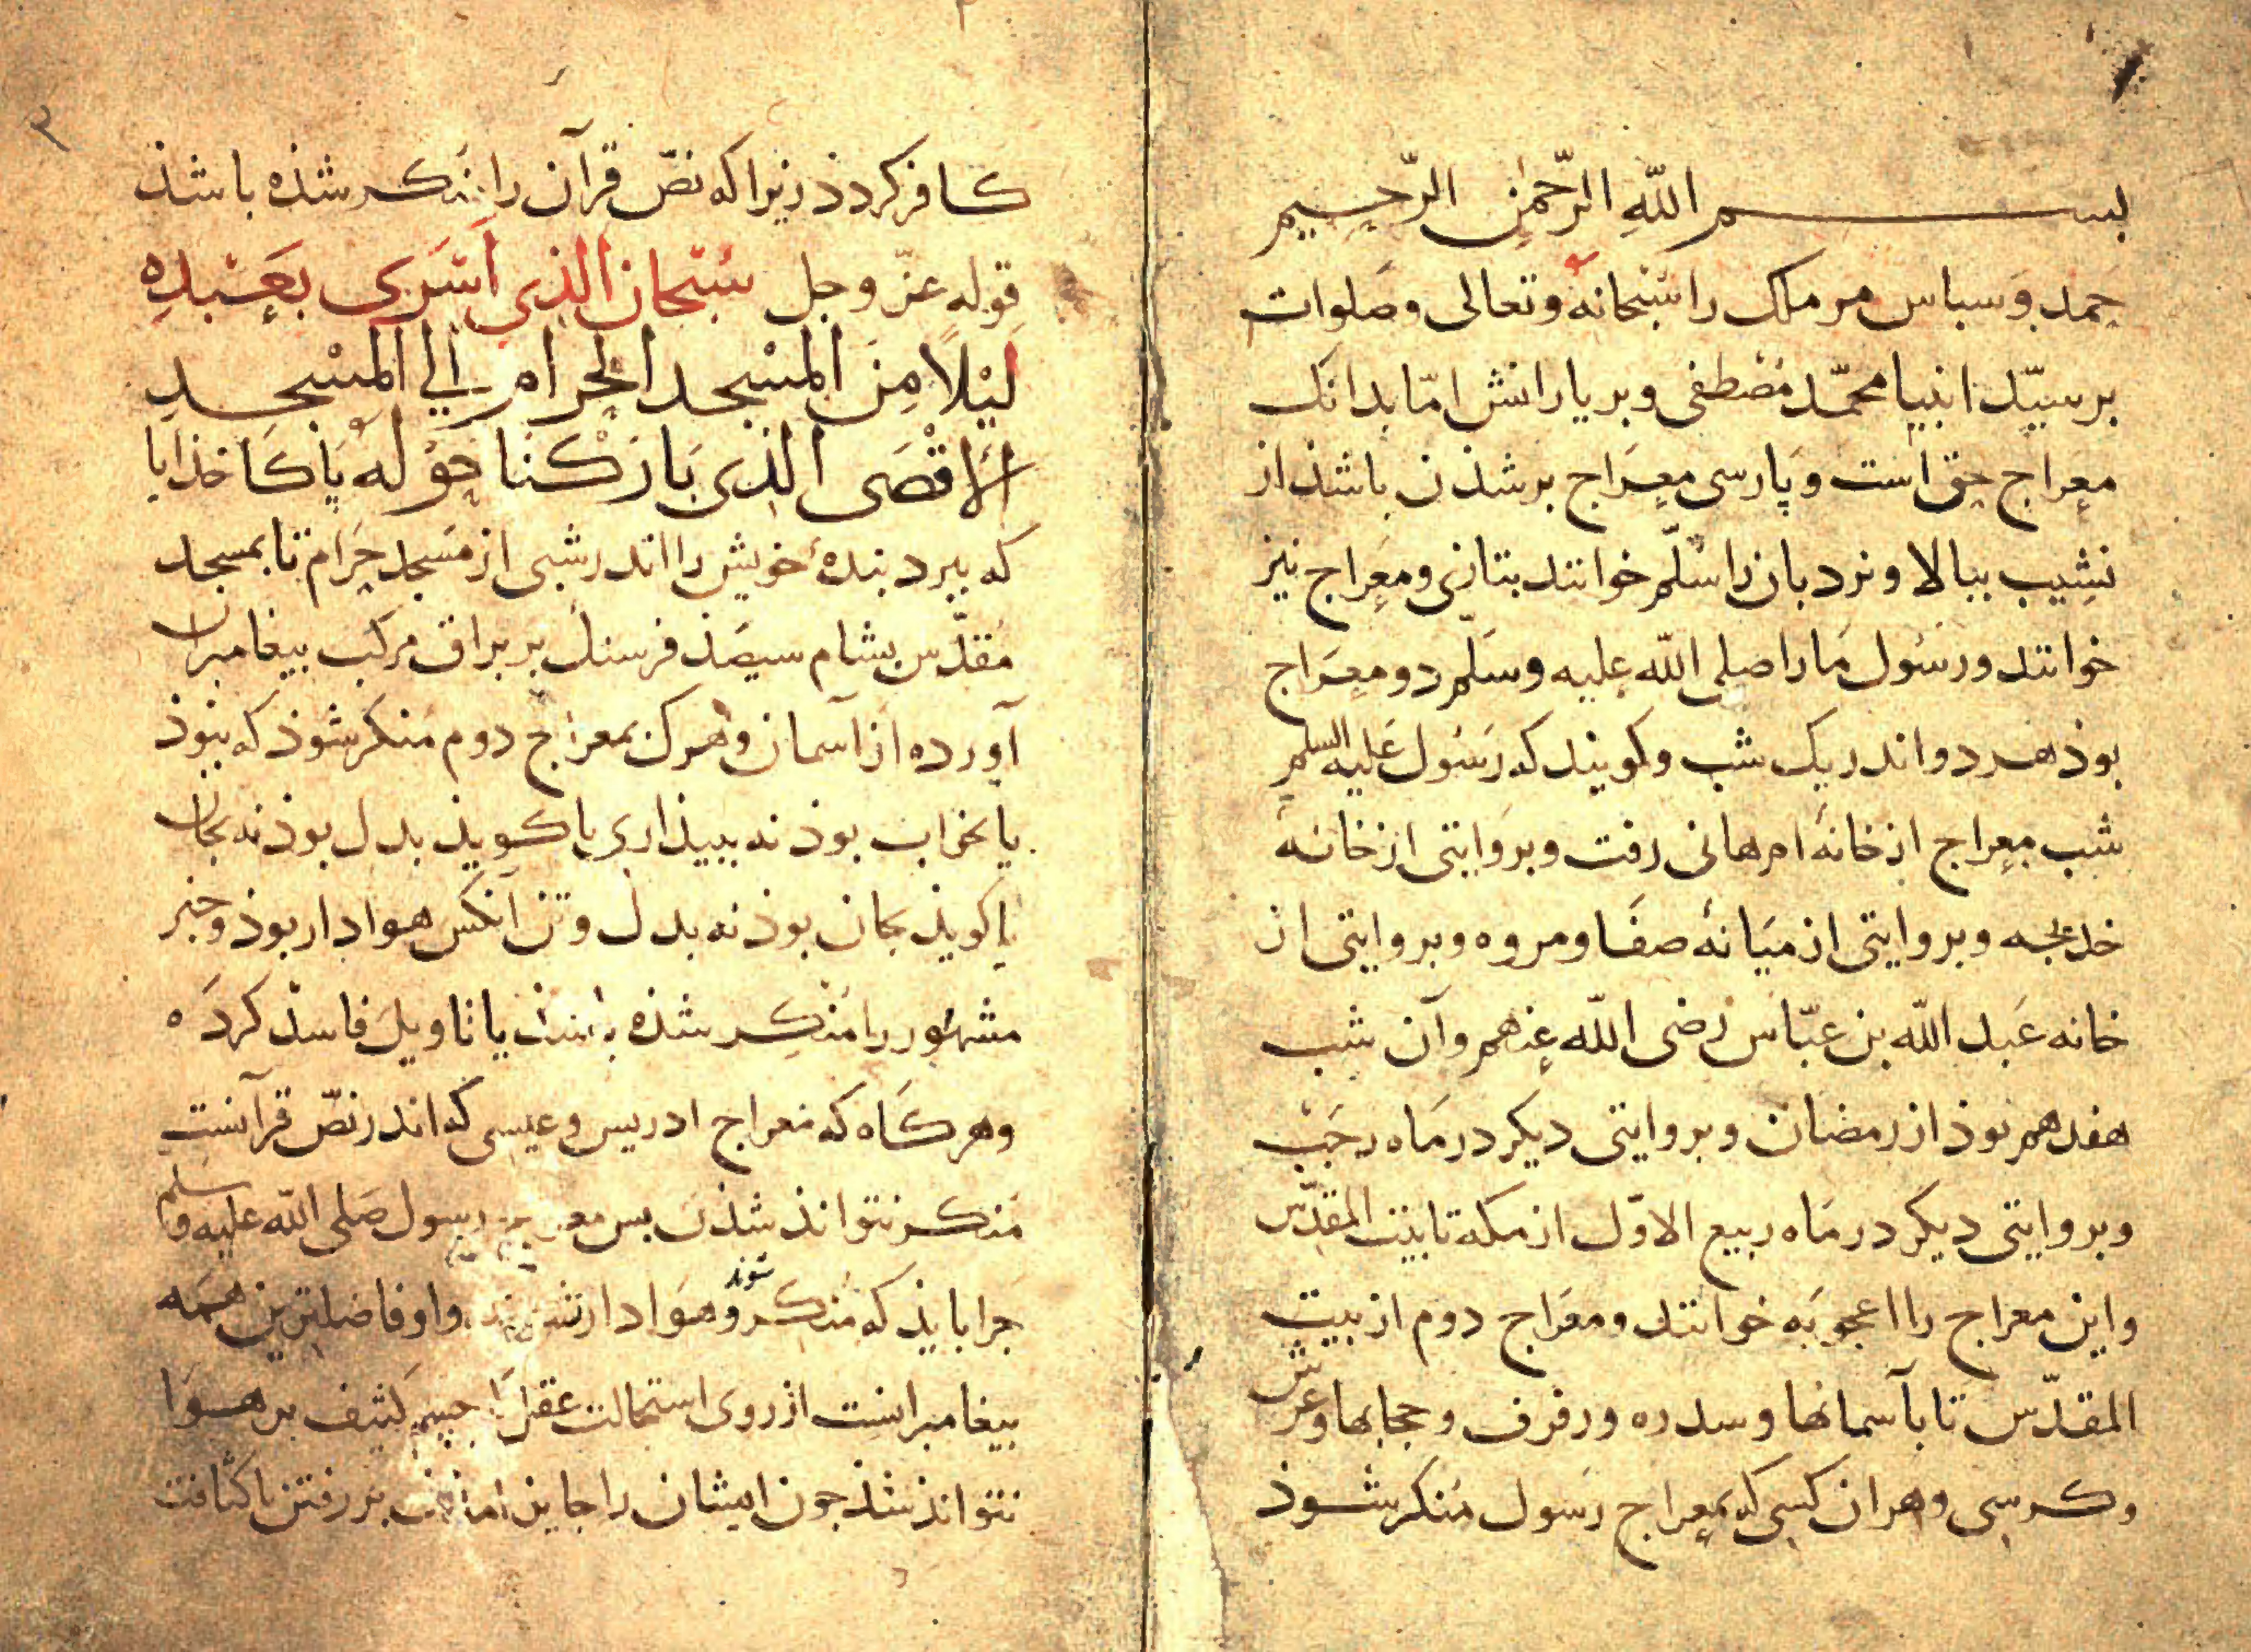 بســـــم الله الرّحمٰن الرّحیم
حمد و سباس مر ملک را سُبْحانهٔ و تعالی و صَلوات
بر سیّد انبیا محمّد مصْطفی و بر یارانش امّا بدانک
معراج حق است و پارسی معراج بر شذن باشذ از
نشیب ببالا و نردبان را سُلّم خوانند بتازی و معراج نیز
خوانند و رسُول ما را صلی الله علیه و سَلّم دو معراج
بوذ هر دو اندر یک شب و کویند که رسُول علیه السلم
شب معراج از خانهٔ ام هانی رفت و بروایتی از خانهٔ
خدیجه و بروایتی از میانهٔ صفَا و مروه و بروایتی از
خانه عَبد الله بن عبّاس رضی الله عنهم و آن شب
هفدهم بوذ از رمضان و بروایتی دیکر در ماه رجَب
و بروایتی دیکر در ماه ربیع الاوّل از مکه تا بیت المقدّس
و این معراج را اعجوبَه خوانند و معراج دوم از بیت
المقدّس تا بآسمانها و سدره و رفرف و حجابها و عرش
و کرسی و هران کسی که بمعراج رسول منکر شوذ
۲
کافر کردذ زیرا که نصّ قرآن را منکر شذه باشذ
قوله عزّ و جل سُبْحان الذی اَسْرَی بعَبْدِهِ
لَیْلًا مِنَ المسْجد الحرام إلی المسْجد
الأقْصَی الذی بَارَکْنا حَوْله پاکا خذایا
که ببرد بندهٔ خویش را اندر شبی از مسجد حرام تا بمسجد
مقدّس بشام سیصذ فرسنک بر براق مرکب بیغامبران
آورده از آسمان و هرک بمعراج دوم منکر شوذ که نبوذ
یا بخواب بوذ نه ببیذاری یا کویذ بدل بوذ نه بجان
یا کویذ بجان بوذ نه بدل و تن آنکس هوادار بوذ و خبر
مشهُور را منکر شذه باشذ یا تاویل فاسذ کرده
و هرکاه که معراج ادریس و عیسی که اندر نصّ قرآنست
منکر نتوانذ شذن بس معراج رسول صَلی الله علیه و سلم
جرا بایذ که مُنکر شوند و هوادار و او فاضلترین همه
بیغامبرانست از روی استحالت عقل را جسم کثیف بر هوا
نتوانذ شذ جون ایشان را جایز بر رفتن با کثافت